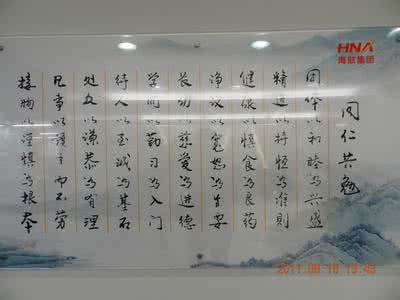 HNA
海航集团
同仁共勉
团体以和睦为兴盛
精进以持恒为准则
健康以慎食为良药
诤议以宽恕为旨要
长幼以慈爱为进德
学问以勤习为入门
待人以至诚为基石
处众以谦恭为有理
凡事以预立而不劳
接物以谨慎为根本